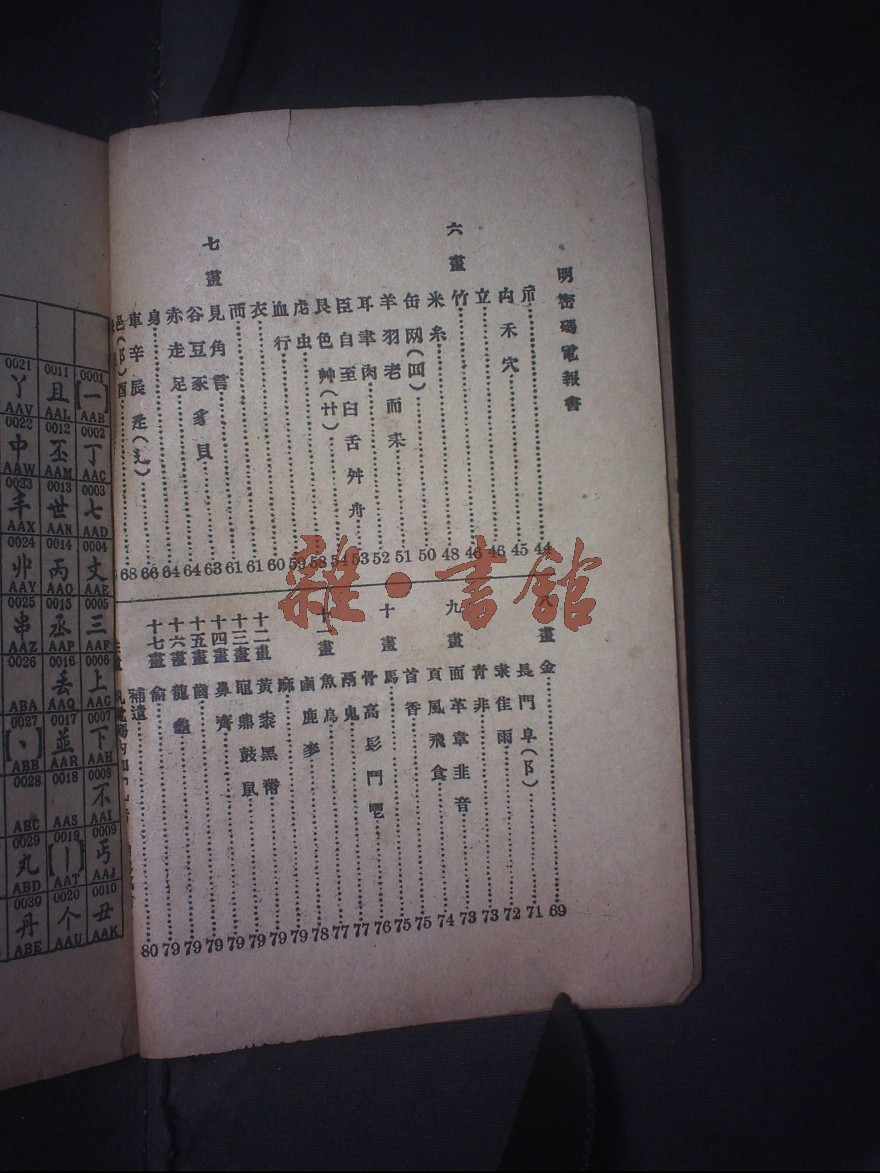 明密碼電報書
示……44
禸禾穴……45
立……46
六畫
竹……46
米糸……48
缶网(罒)……50
羊羽老而耒……51
耳聿肉……52
臣自至臼舌舛舟……53
艮色艸(艹)……54
虍虫……58
血行……59
衣……60
襾……61
七畫
見角言……61
谷豆豕豸貝……63
赤走足……64
身……64
車辛辰辵(辶)……66
邑(阝)酉……68
八畫
金……69
長門阜(阝)……71
隶隹雨……72
青非……73
九畫
面革韋韭音……73
頁風飛食……74
首香……75
十畫
馬……75
骨高髟鬥鬯……76
鬲鬼……77
十一畫
魚鳥……77
鹵鹿麥……78
麻……79
十二畫
黃黍黑黹……79
十三畫
黽鼎鼓鼠……79
十四畫
鼻齊……79
十五畫
齒……79
十六畫
龍龜……79
十七畫
龠……79
補遺……80
雜·書館
0001 【一】 AAB
0002 丁 AAC
0003 七 AAD
0004 丈 AAE
0005 三 AAF
0006 上 AAG
0007 下 AAH
0008 不 AAI
0009 丐 AAJ
0010 丑 AAK
0011 且 AAL
0012 丕 AAM
0013 世 AAN
0014 丙 AAO
0015 丞 AAP
0016 丢 AAQ
0017 並 AAR
0018 AAS
0019 【丨】 AAT
0020 个 AAU
0021 丫 AAV
0022 中 AAW
0023 丰 AAX
0024 丱 AAY
0025 串 AAZ
0026 ABA
0027 【丶】 ABB
0028 ABC
0029 丸 ABD
0030 丹 ABE